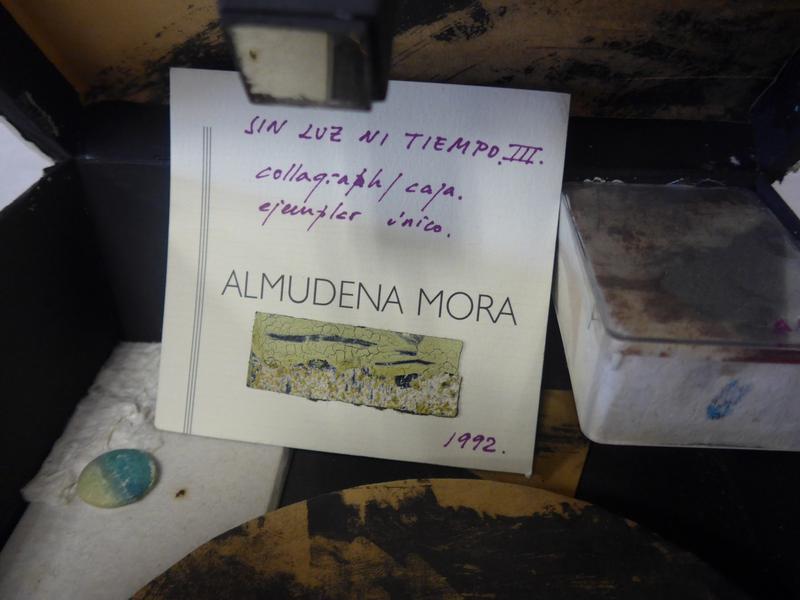 SIN LUZ NI TIEMPO. III.
collagraph / caja.
ejemplar único.
ALMUDENA MORA
1992.